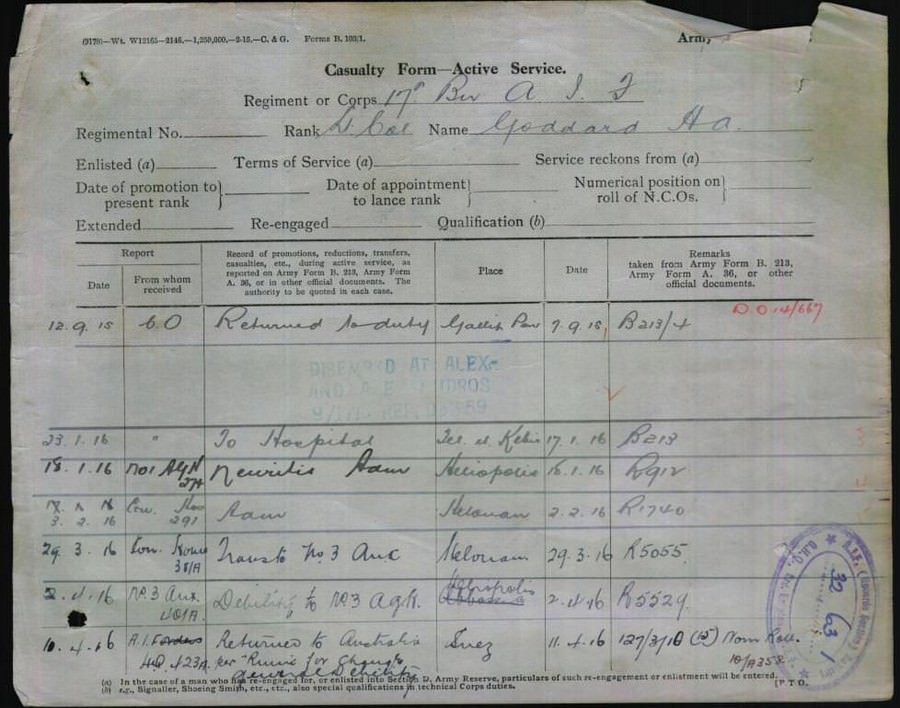 (9179)—Wt. W12165—2146.—1,250,000.—2-15.—C. & G. Forms B. 103/1. Army
Casualty Form—Active Service.
Regiment or Corps 17 Bn A I F
Regimental No. Rank Name Goddard H a.
Enlisted (a) Terms of Service (a) Service reckons from (a)
Date of promotion to present rank } Date of appointment to lance rank } Numerical position on roll of N.C.Os. }
Extended Re-engaged Qualification (b)
Report
Date
From whom received
Record of promotions, reductions, transfers, casualties, etc., during active service, as reported on Army Form B. 213, Army Form A. 36, or in other official documents. The authority to be quoted in each case.
Place
Date
Remarks
taken from Army Form B. 213, Army Form A. 36, or other official documents.
12.9.15 C.O Returned to duty Gallip Pen 7.9.15 B213/4 D.O 14/667
DISEMB D AT ALEX-
AND
23.1.16 " To Hospital Tel el Kebir 17.1.16 B213
18.1.16 No1 AGH Neuritis Adm Heliopolis 18.1.16 R912
3.2.16 Con. Hos 291 Adm Helouan 2.2.16 R1740
29.3.16 Con. Home Trans to No.3 Aux Helouan 29.3.16 R5055
2.4.16 No.3 Aux. Debility to No.3 AGH. 2.4.16 R5529
10.4.16 Returned to Australia Suez 11.4.16 127/3/10 (15) Nom Roll.
HQ 423A per "Runic" for Change 10/A358
General Debility
(a) In the case of a man who has re-engaged for, or enlisted into Section D, Army Reserve, particulars of such re-engagement or enlistment will be entered.
(b) e.g., Signaller, Shoeing Smith, etc., etc., also special qualifications in technical Corps duties. [P.T.O.